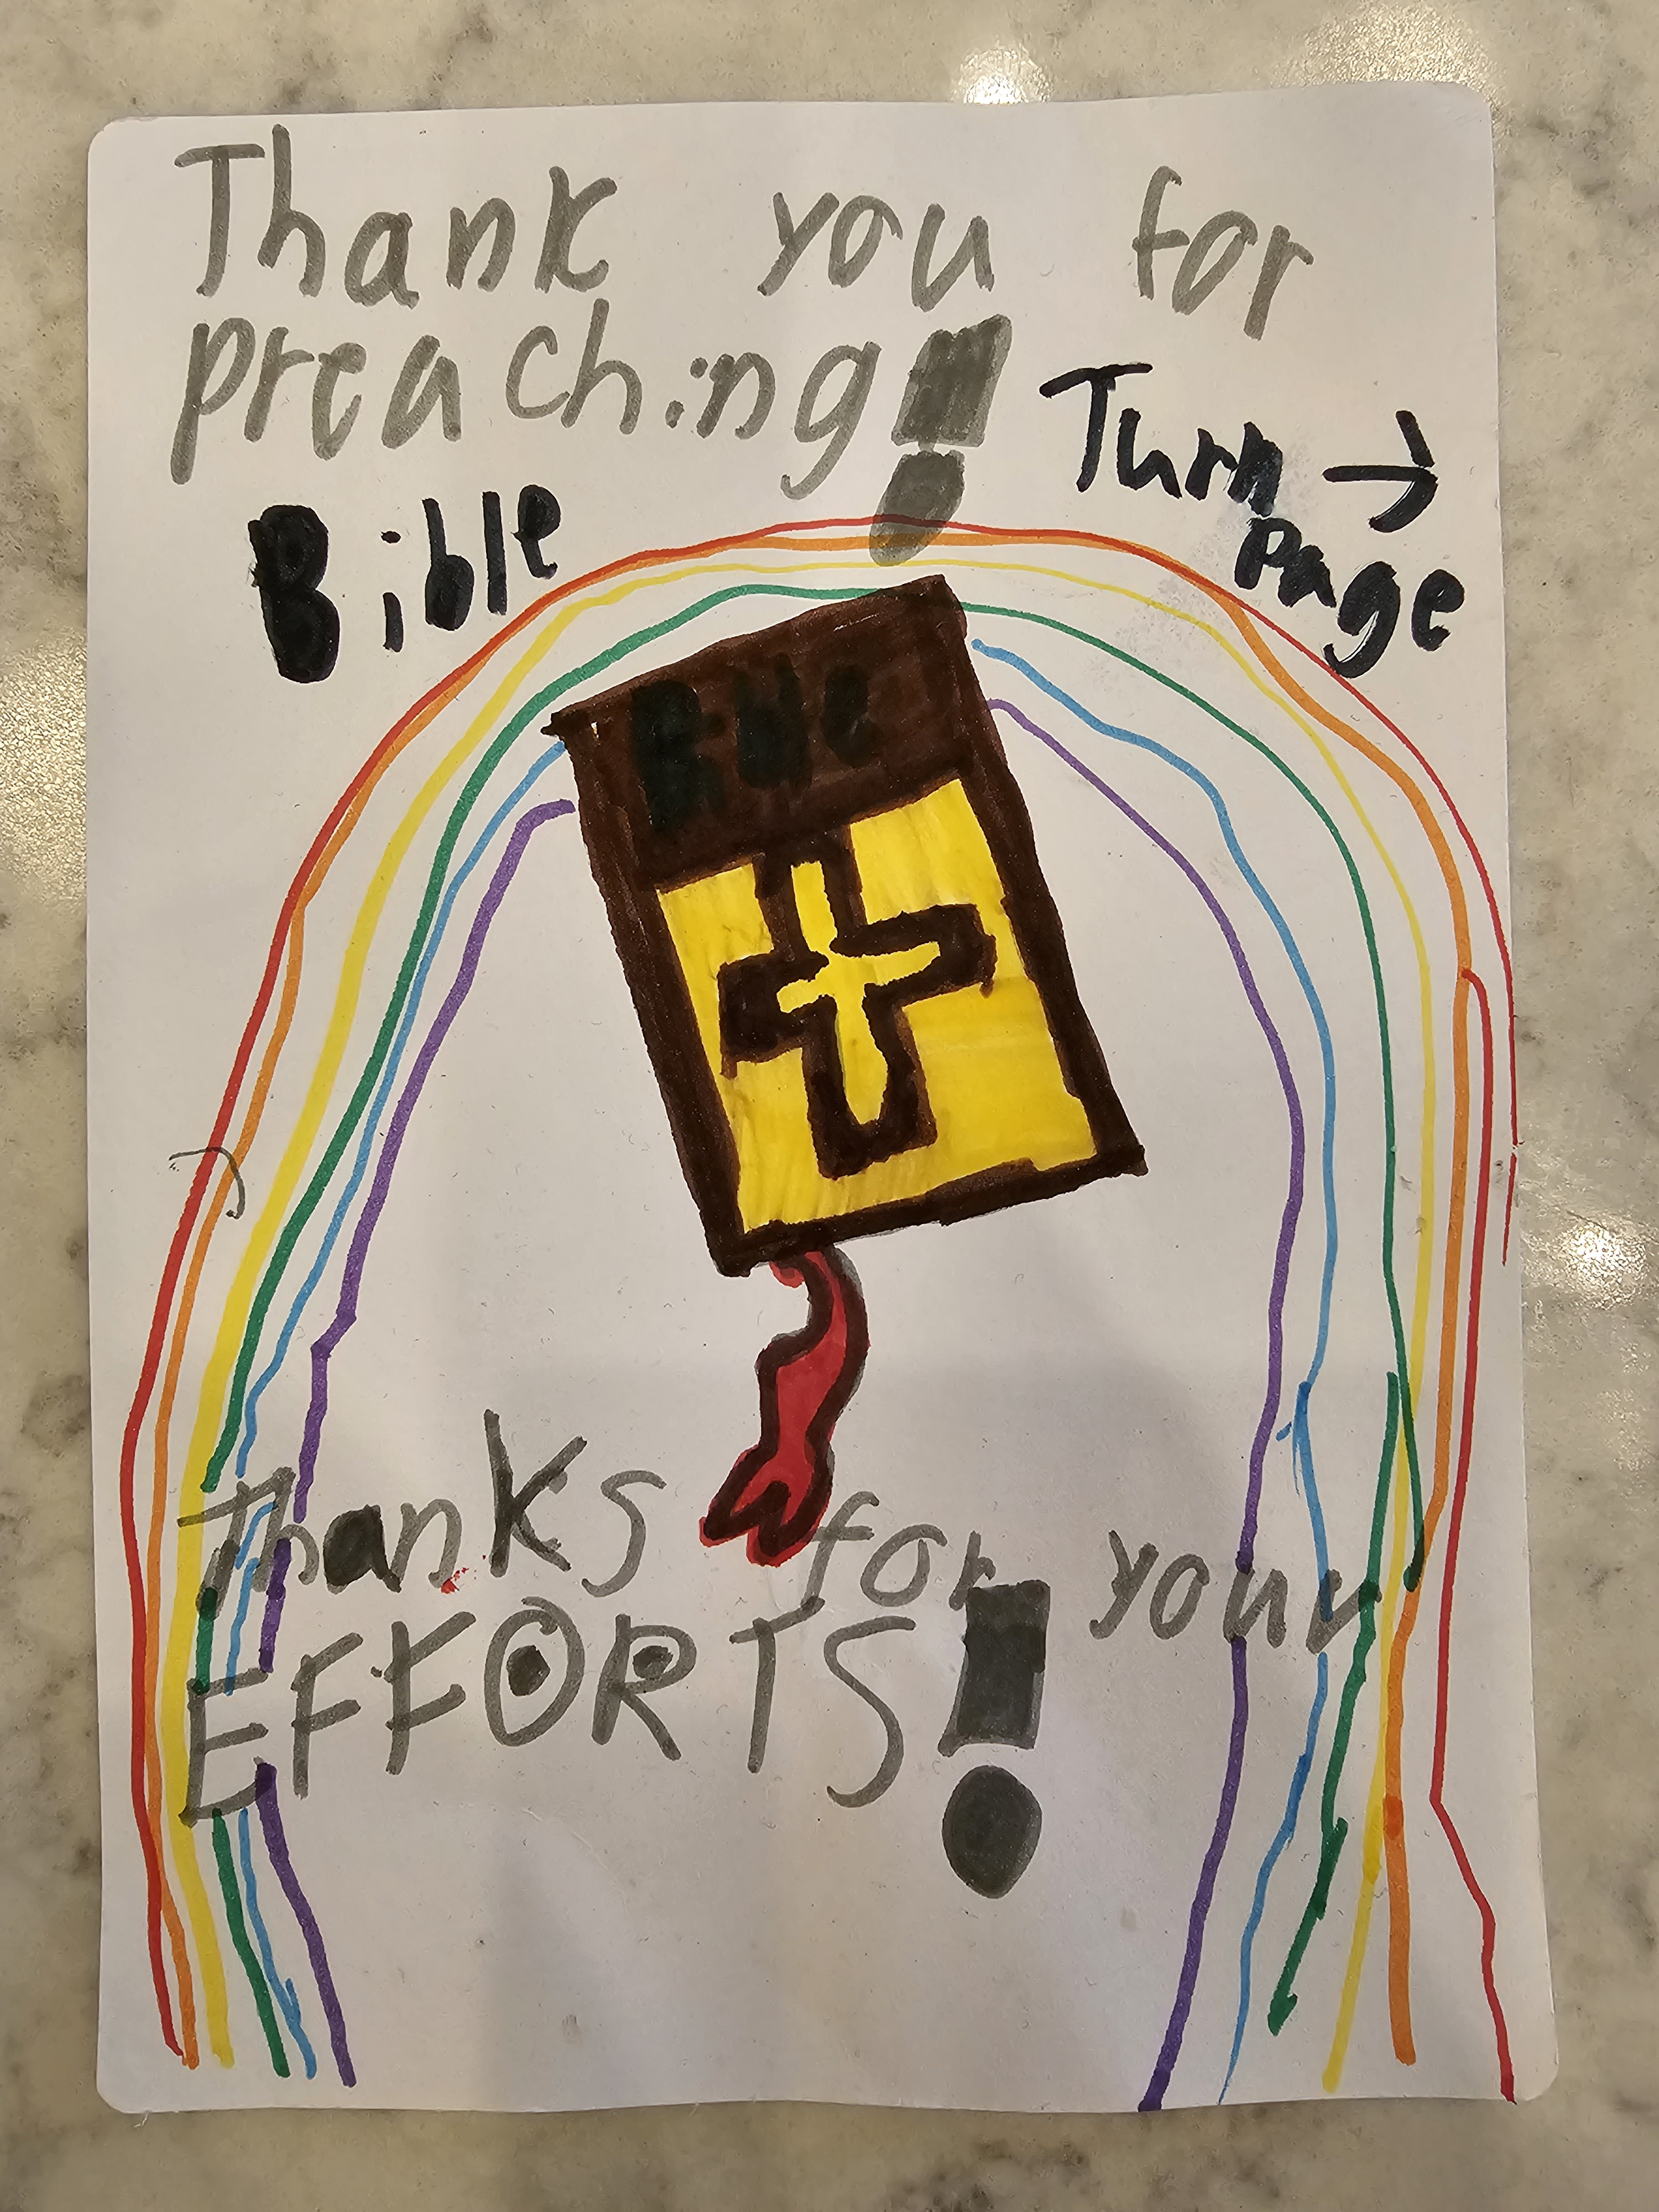 Thank you for
preaching!
Turn →
Page
Bible
Bible
Thanks for your
EFFORTS!